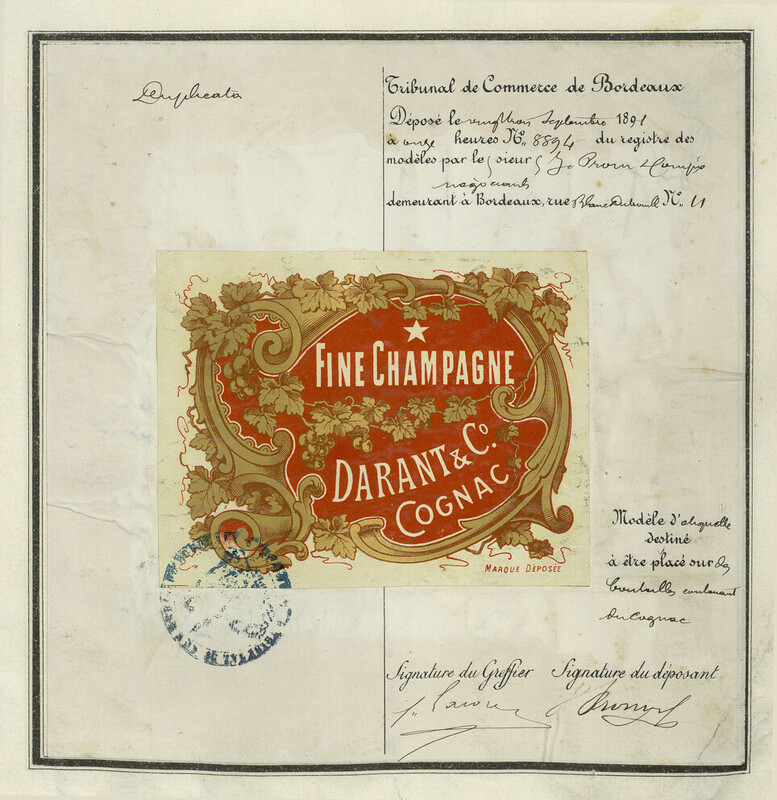 Duplicata
Tribunal de Commerce de Bordeaux
Déposé le vingt trois Septembre 1891
à onze heures N° 8894 du registre des
modèles par le sieur J. Prom & Compie
négociants
demeurant à Bordeaux, rue Blanc Dutrouilh N° 11
FINE CHAMPAGNE
DARANT & Co.
COGNAC
MARQUE DÉPOSÉE
Modèle d'étiquette
destiné
à être placé sur des
bouteilles contenant
du Cognac
Signature du Greffier Signature du déposant